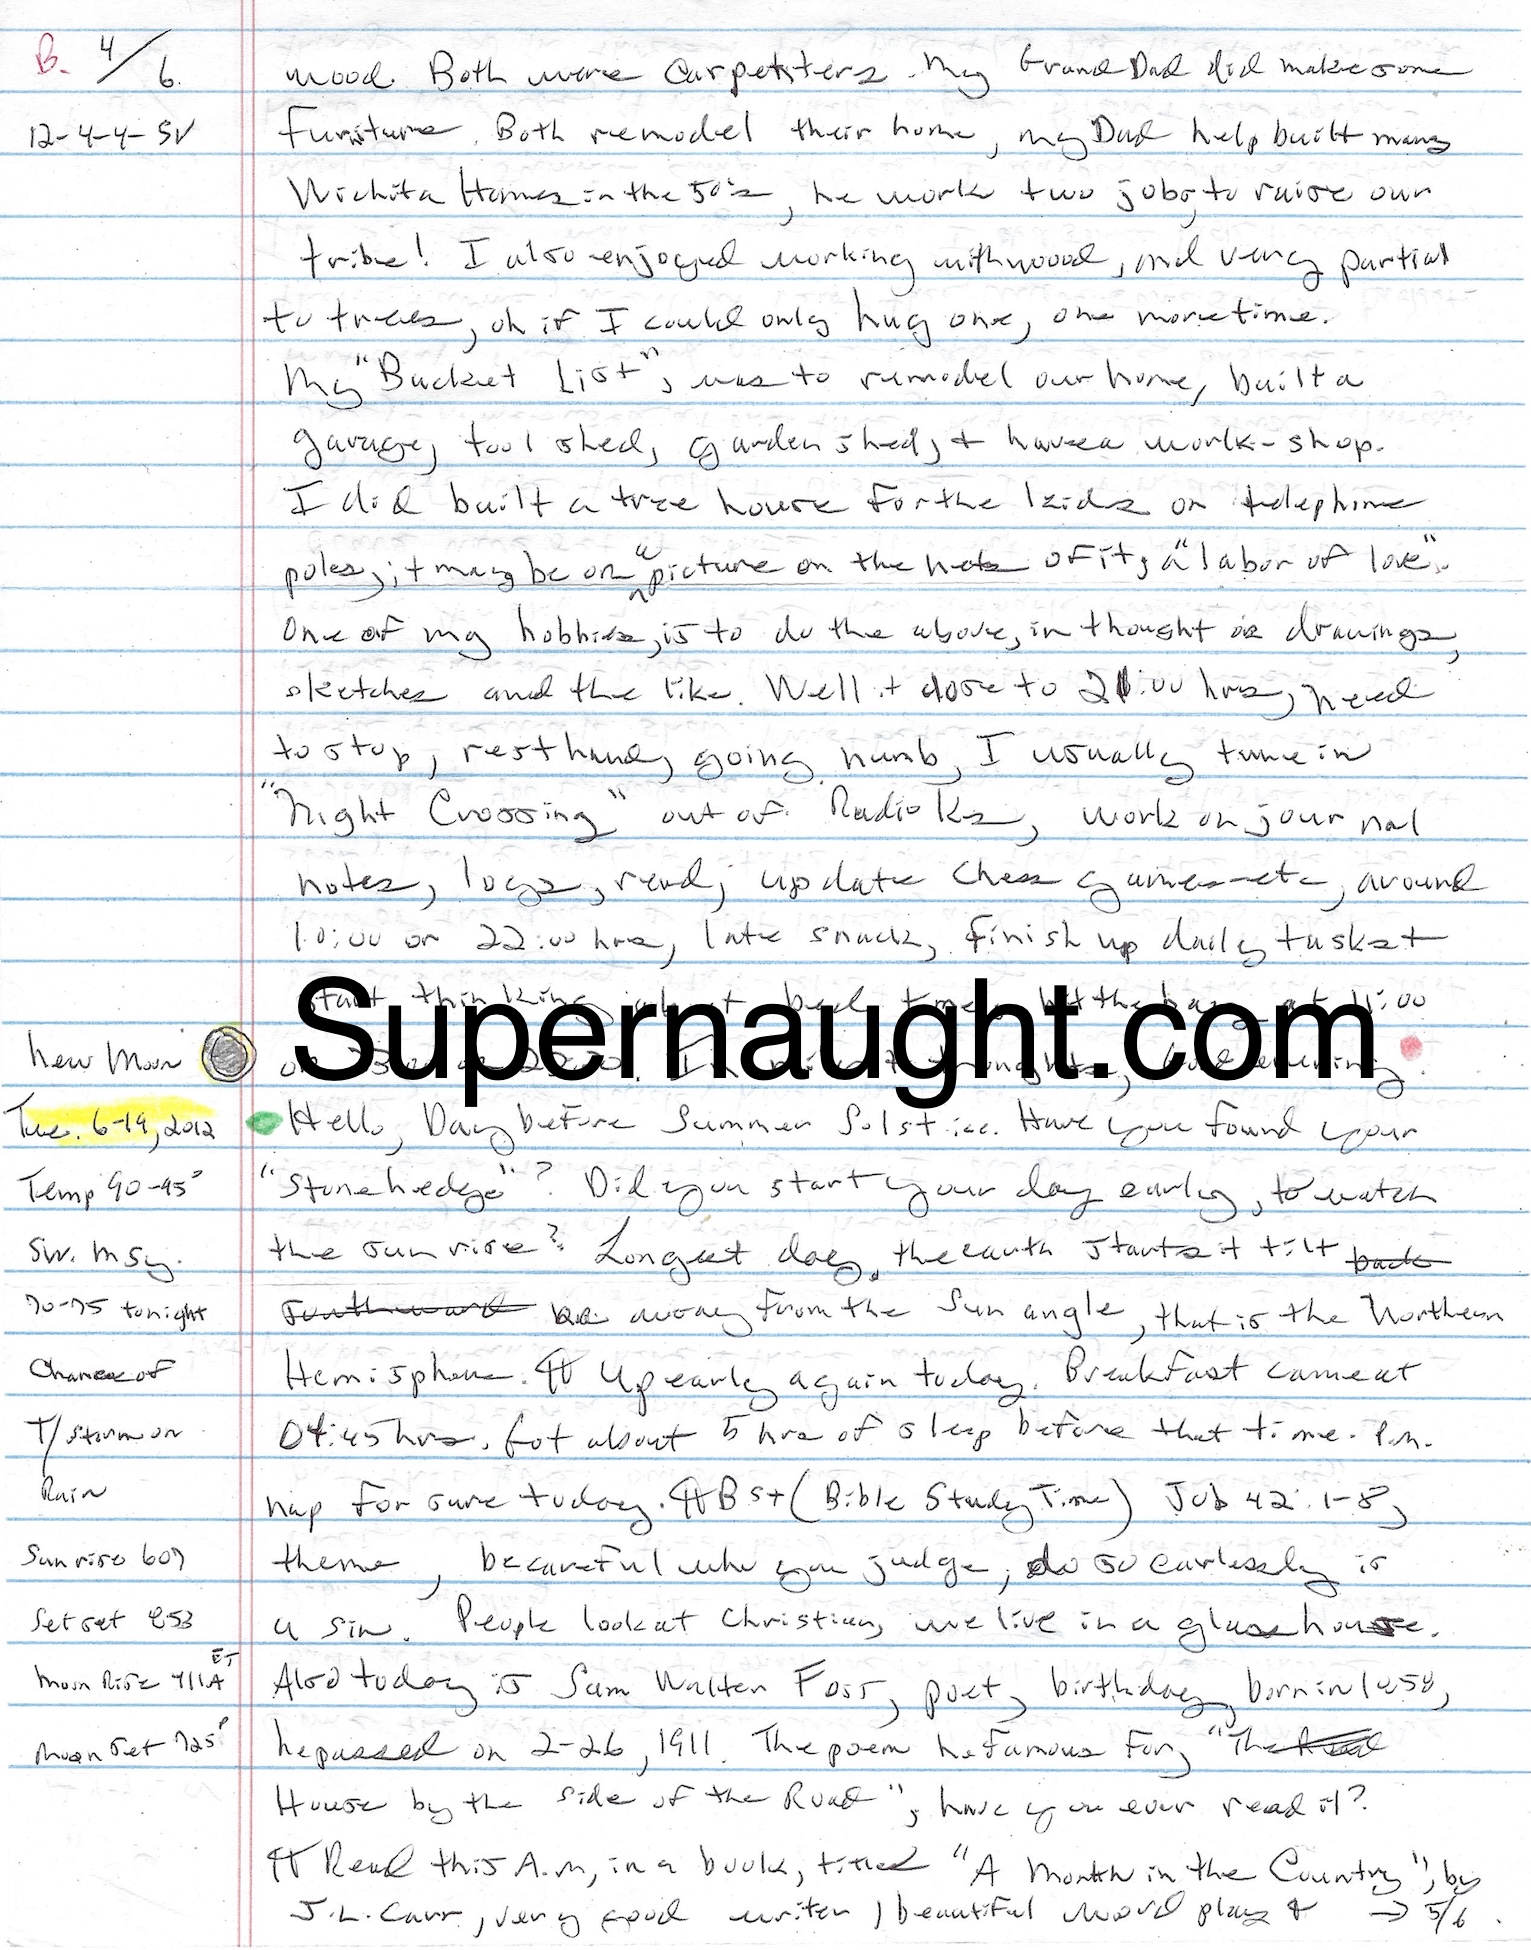 B. 4/6.
wood. Both were Carpetiters. My Grand Dad did make some
12-4-4-SV
Furniture. Both remodel their home, my Dad help built many
Wichita Homes in the 50's, he work two jobs, to raise our
tribe! I also enjoyed working with wood, and very partial
to trees, oh if I could only hug one, one more time.
My "Bucket List", was to remodel our home, built a
garage, tool shed, garden shed, + have a work-shop.
I did built a tree house for the kids on telephone
poles, it may be on a picture on the net of it, a "labor of love".
One of my hobbies, is to do the above, in thought or drawings,
sketches and the like. Well it close to 21:00 hrs, need
to stop, rest hand, going numb, I usually tune in
"Night Crossing" out of Radio Ks, work on journal
notes, logs, read, update Chess games-etc, around
10:00 or 22:00 hrs, late snack, finish up daily tasks +
start thinking about bed time, hit the hay at 11:00
Supernaught.com
New Moon
or good evening.
Tue. 6-19, 2012
Hello, Day before Summer Solstice. Have you found your
Temp 90-95°
"Stonehedge"? Did you start your day early, to watch
SW. Msy.
the sun rise? Longest day, the earth starts it tilt back
70-75 tonight
Southward away from the Sun angle, that is the Northern
Chance of
Hemisphere. ¶ Up early again today. Breakfast came at
T/storm or
04:45 hrs. Got about 5 hrs of sleep before that time. P.M.
Rain
nap for sure today. ¶ BST (Bible Study Time) Job 42:1-8,
Sunrise 607
theme, be careful who you judge, do so carlessly is
Set set 853
a sin. People look at Christian, we live in a glass house.
Moon Rise 711A ET
Also today is Sam Walter Foss, poet, birthday, born in 1858,
Moon set 725P
he passed on 2-26, 1911. The poem he famous for, "The Road
House by the Side of the Road", have you ever read it?
¶ Read this A.M, in a book, titled "A Month in the Country", by
J.L. Carr, very good writer, beautiful word plays + → 5/6.